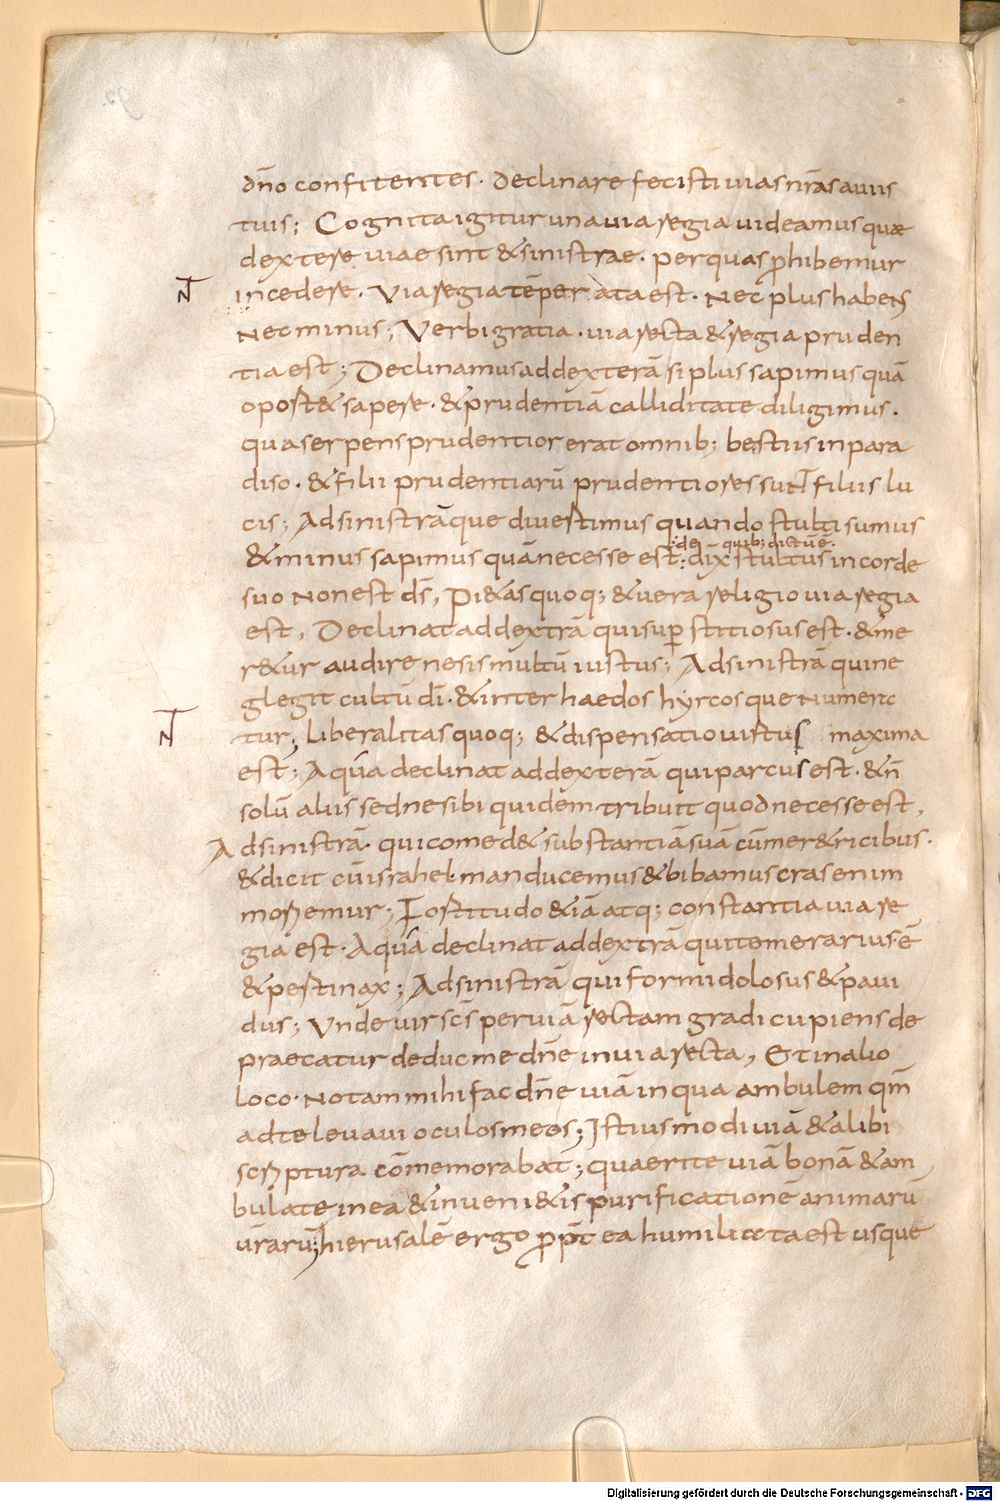 dño confitentes. Declinare fecisti uias nr̄as a uiis
tuis; Cognita igitur una uia regia uideamus quæ
dextere uiae sint & sinistrae. per quas ꝓhibemur
incedere. Via regia tēperata est. Nec plus habens
Nec minus; Verbi gratia. uia recta & regia pruden
tia est; Declinamus ad dexterā si plus sapimus quā
oport& sapere. & prudentiā calliditate diligimus.
qua serpens prudentior erat omnib; bestiis in para
diso. & filii prudentiarū prudentiores sunt filiis lu
cis; Ad sinistrāque diuertimus quando stulti sumus
:de quib; dictū ē.
& minus sapimus quā necesse est: dix̄ stultus in corde
suo Non est ds̄, Pi&as quoq; & uera religio uia regia
est, Declinat ad dextrā qui suꝑstitiosus est. & me
r&ur audire ne sis multū iustus; Ad sinistrā qui ne
glegit cultū dī. & inter haedos hyrcosque Numeric
tur; liberalitas quoq; & dispensatio uirtus maxima
est; A qua declinat ad dexterā qui parcus est. & ñ
solū aliis sed ne sibi quidem tribuit quod necesse est,
Ad sinistrā. qui comed& substantiā suā cū mer&ricibus.
& dicit cū israhel. manducemus & bibamus cras enim
moriemur; Fortitudo &iā atq; constantia uia re
gia est. A qua declinat ad dextrā qui temerarius ē
& pertinax; Ad sinistrā qui formidolosus & paui
dus; Vnde uir scs̄ per uiā rectam gradi cupiens de
praecatur deduc me dñe in uia recta, Et in alio
loco. Notam mihi fac dñe uiā in qua ambulem qm̄
ad te leuaui oculos meos; Istius modi uiā & alibi
scriptura cōmemorabat; quaerite uiā bonā & am
bulate in ea & inueni&is purificationē animarū
ur̄arū; hierusalē ergo ꝓpt̄ ea humilitata est usque